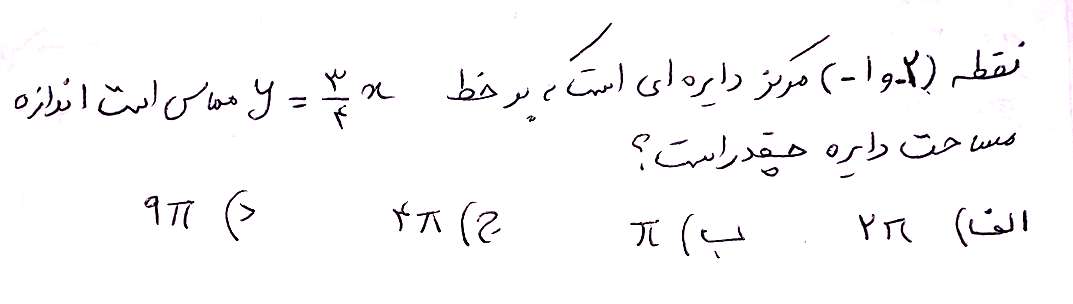 نقطه (-۱ و -۲) مرکز دایره ای است که بر خط y = ۳/۴ x مماس است اندازه
مساحت دایره چقدر است؟
الف) ۲π ب) π ج) ۴π د) ۹π